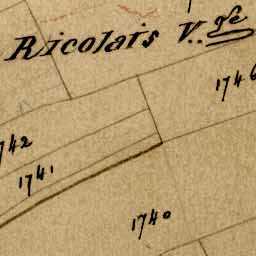 Ricolais V..ge
1746
1742
1741
1740